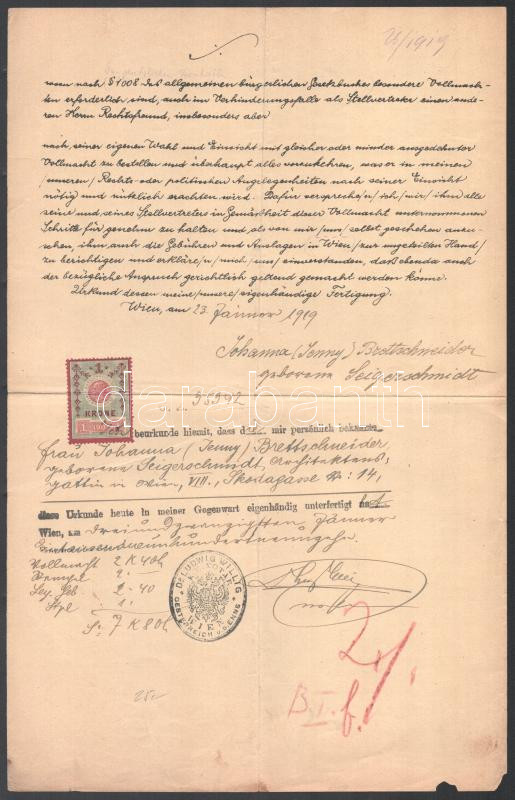 26/1919
wenn nach § 1008 des allgemeinen bürgerlichen Gesetzbuches besondere Vollmach-
ten erforderlich sind, auch im Verhinderungsfalle als Stellvertreter einen ande-
ren Herrn Rechtsfreund, insbesondere aber
nach seiner eigenen Wahl und Einsicht mit gleicher oder minder ausgedehnter
Vollmacht zu bestellen und überhaupt alles vorzukehren, was er in meinen
/unseren/ Rechts- oder politischen Angelegenheiten nach seiner Einsicht
nötig und nützlich erachten wird. Dafür verspreche/n/ ich/wir/ ihm alle
seine und seines Stellvertreters in Gemäßheit dieser Vollmacht unternommenen
Schritte für genehm zu halten und als von mir/uns/ selbst geschehen anzu-
sehen, ihm auch die Gebühren und Auslagen in Wien /zur ungeteilten Hand/
zu berichtigen und erkläre/n/ mich/uns/ einverstanden, daß ebenda auch
der bezügliche Anspruch gerichtlich geltend gemacht werden könne.
Urkund dessen meine/unsere/ eigenhändige Fertigung.
Wien, am 23. Jänner 1919
Johanna (Jenny) Brettschneider
geborene Seigerschmidt
35992
1 KRONE
beurkunde hiemit, dass mir persönlich bekannte
Frau Johanna (Jenny) Brettschneider
geborene Seigerschmidt, Architektens-
gattin in Wien, VIII., Skodagasse Nr. 14,
diese Urkunde heute in meiner Gegenwart eigenhändig unterfertigt hat.
Wien, am dreiundzwanzigsten Jänner
Eintausendneunhundertneunzehn.
Vollmacht 2 K 40h
Stempel 2.-
Leg. Geb. 2-40
Stpl 1.-
S: 7 K 80h
DR LUDWIG WILLTG
WIEN
OESTERREICH U.D. ENNS
B. I. f.
25.-
darabanth